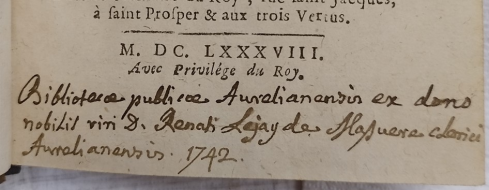 du Roy, rue saint Jacques,
à saint Prosper & aux trois Vertus.
M. DC. LXXXVIII.
Avec Privilége du Roy.
Bibliotecæ publicæ Aurelianensis ex dono
nobilis viri D. Renati Lejay de Massuere clerici
Aurelianensis. 1742.